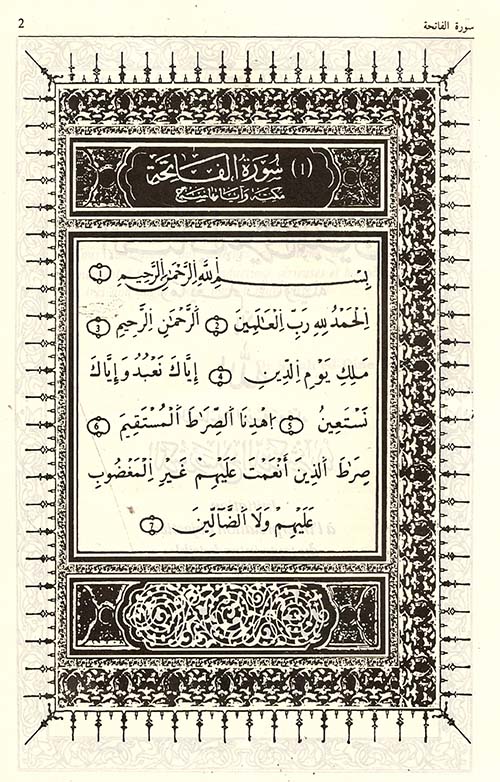 سورة الفاتحة 2
(١) سُورَةُ الفَاتِحَةِ
مكيّة وآياتها سَبع
بِسْمِ اللَّهِ الرَّحْمَٰنِ الرَّحِيمِ ١
الْحَمْدُ لِلَّهِ رَبِّ الْعَالَمِينَ ٢ الرَّحْمَٰنِ الرَّحِيمِ ٣
مَلِكِ يَوْمِ الدِّينِ ٤ إِيَّاكَ نَعْبُدُ وَإِيَّاكَ
نَسْتَعِينُ ٥ اهْدِنَا الصِّرَاطَ الْمُسْتَقِيمَ ٦
صِرَاطَ الَّذِينَ أَنْعَمْتَ عَلَيْهِمْ غَيْرِ الْمَغْضُوبِ
عَلَيْهِمْ وَلَا الضَّالِّينَ ٧